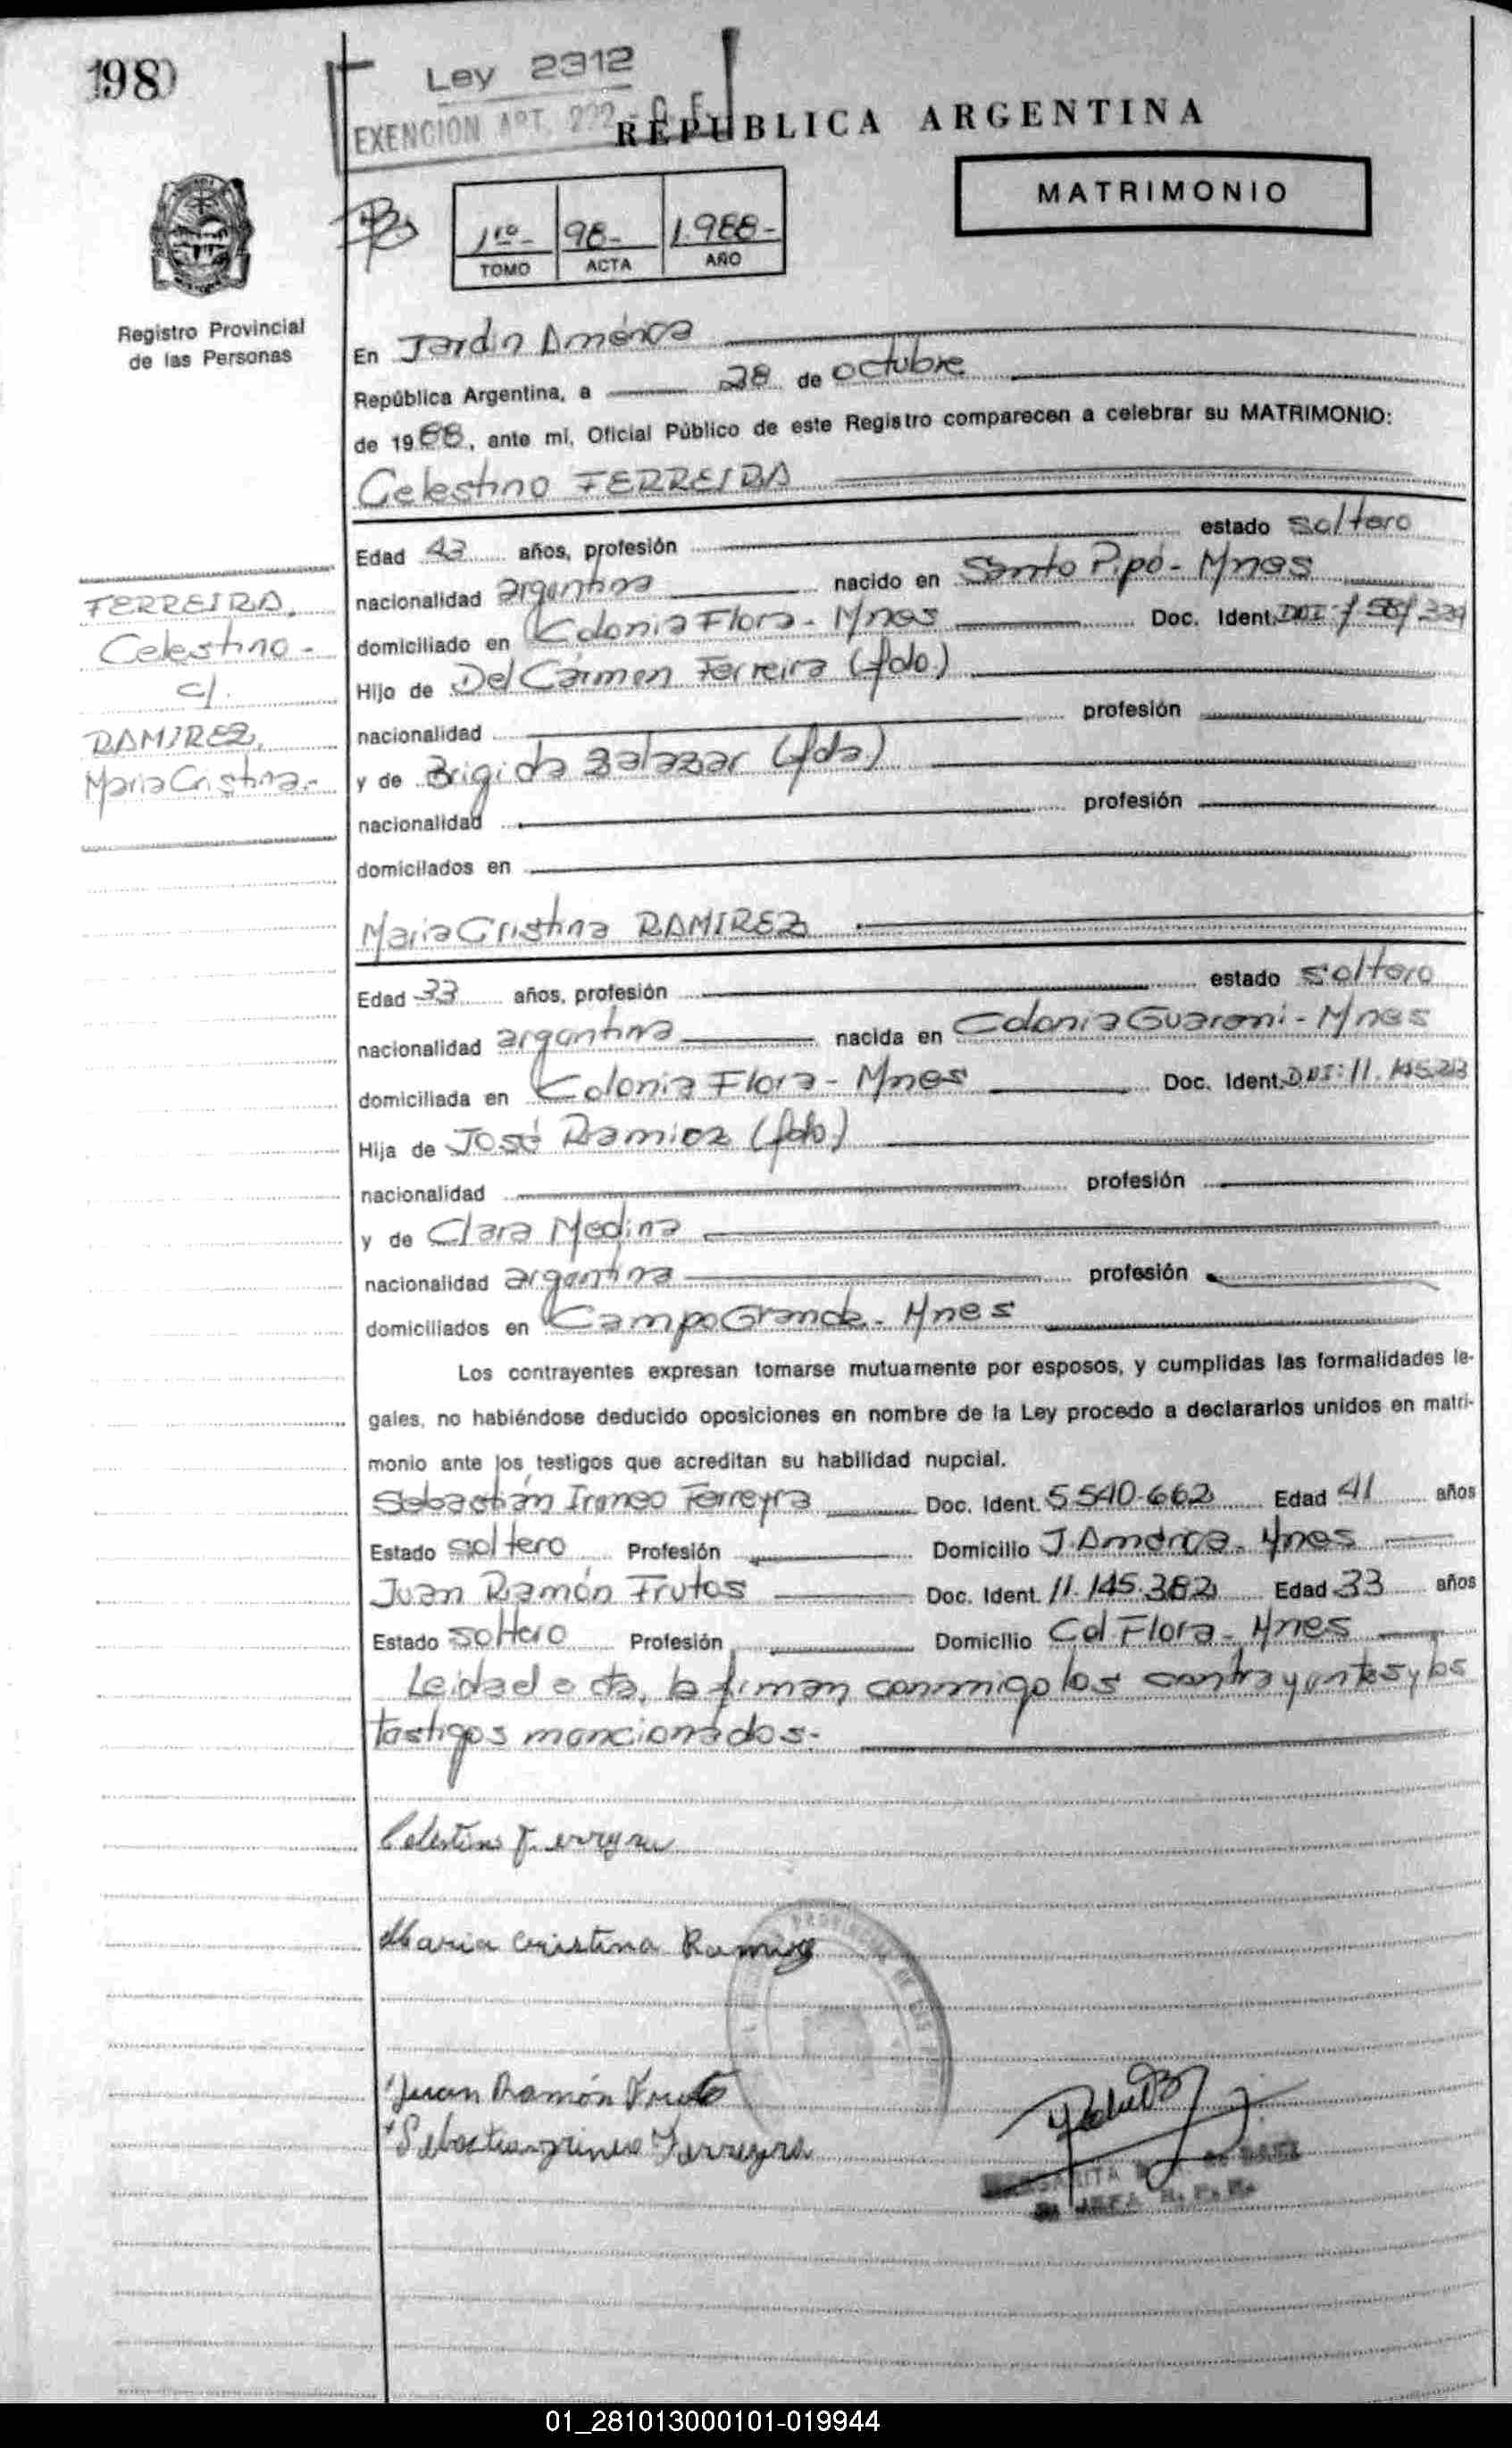 198)
Ley 2312
EXENCION ART. 222
REPUBLICA ARGENTINA
MATRIMONIO
1ro- 98- 1.988-
TOMO ACTA AÑO
Registro Provincial
de las Personas
En Jardín América
República Argentina, a 28 de octubre
de 1988, ante mí, Oficial Público de este Registro comparecen a celebrar su MATRIMONIO:
Celestino FERREIRA
Edad 43 años, profesión estado soltero
nacionalidad argentina nacido en Santo Pipó - Mnes
domiciliado en Colonia Flora - Mnes Doc. Ident. DNI:
Hijo de Del Cármen Ferreira (fdo.)
nacionalidad profesión
y de Brigida Balazar (fda)
nacionalidad profesión
domicilados en
FERREIRA,
Celestino -
c/.
RAMIREZ,
Maria Cristina.-
Maria Cristina RAMIREZ
Edad 33 años, profesión estado soltero
nacionalidad argentina nacida en Colonia Guaraní - Mnes
domiciliada en Colonia Flora - Mnes Doc. Ident. DNI: 11.145.213
Hija de José Ramirez (fdo.)
nacionalidad profesión
y de Clara Medina
nacionalidad argentina profesión
domiciliados en Campo Grande - Mnes
Los contrayentes expresan tomarse mutuamente por esposos, y cumplidas las formalidades le-
gales, no habiéndose deducido oposiciones en nombre de la Ley procedo a declararlos unidos en matri-
monio ante los testigos que acreditan su habilidad nupcial.
Sebastián Ireneo Ferreyra Doc. Ident. 5.540.662 Edad 41 años
Estado soltero Profesión Domicilio J. América - Mnes
Juan Ramón Frutos Doc. Ident. 11.145.382 Edad 33 años
Estado soltero Profesión Domicilio Col Flora - Mnes
Leida el acta, la firman conmigo los contrayentes y los
testigos mencionados.-
Celestino Ferreyra
Maria Cristina Ramirez
Juan Ramón Fruto
Sebastian irineo Ferreyra
MARGARITA DE BAEZ
JEFA R. P. P.
01_281013000101-019944